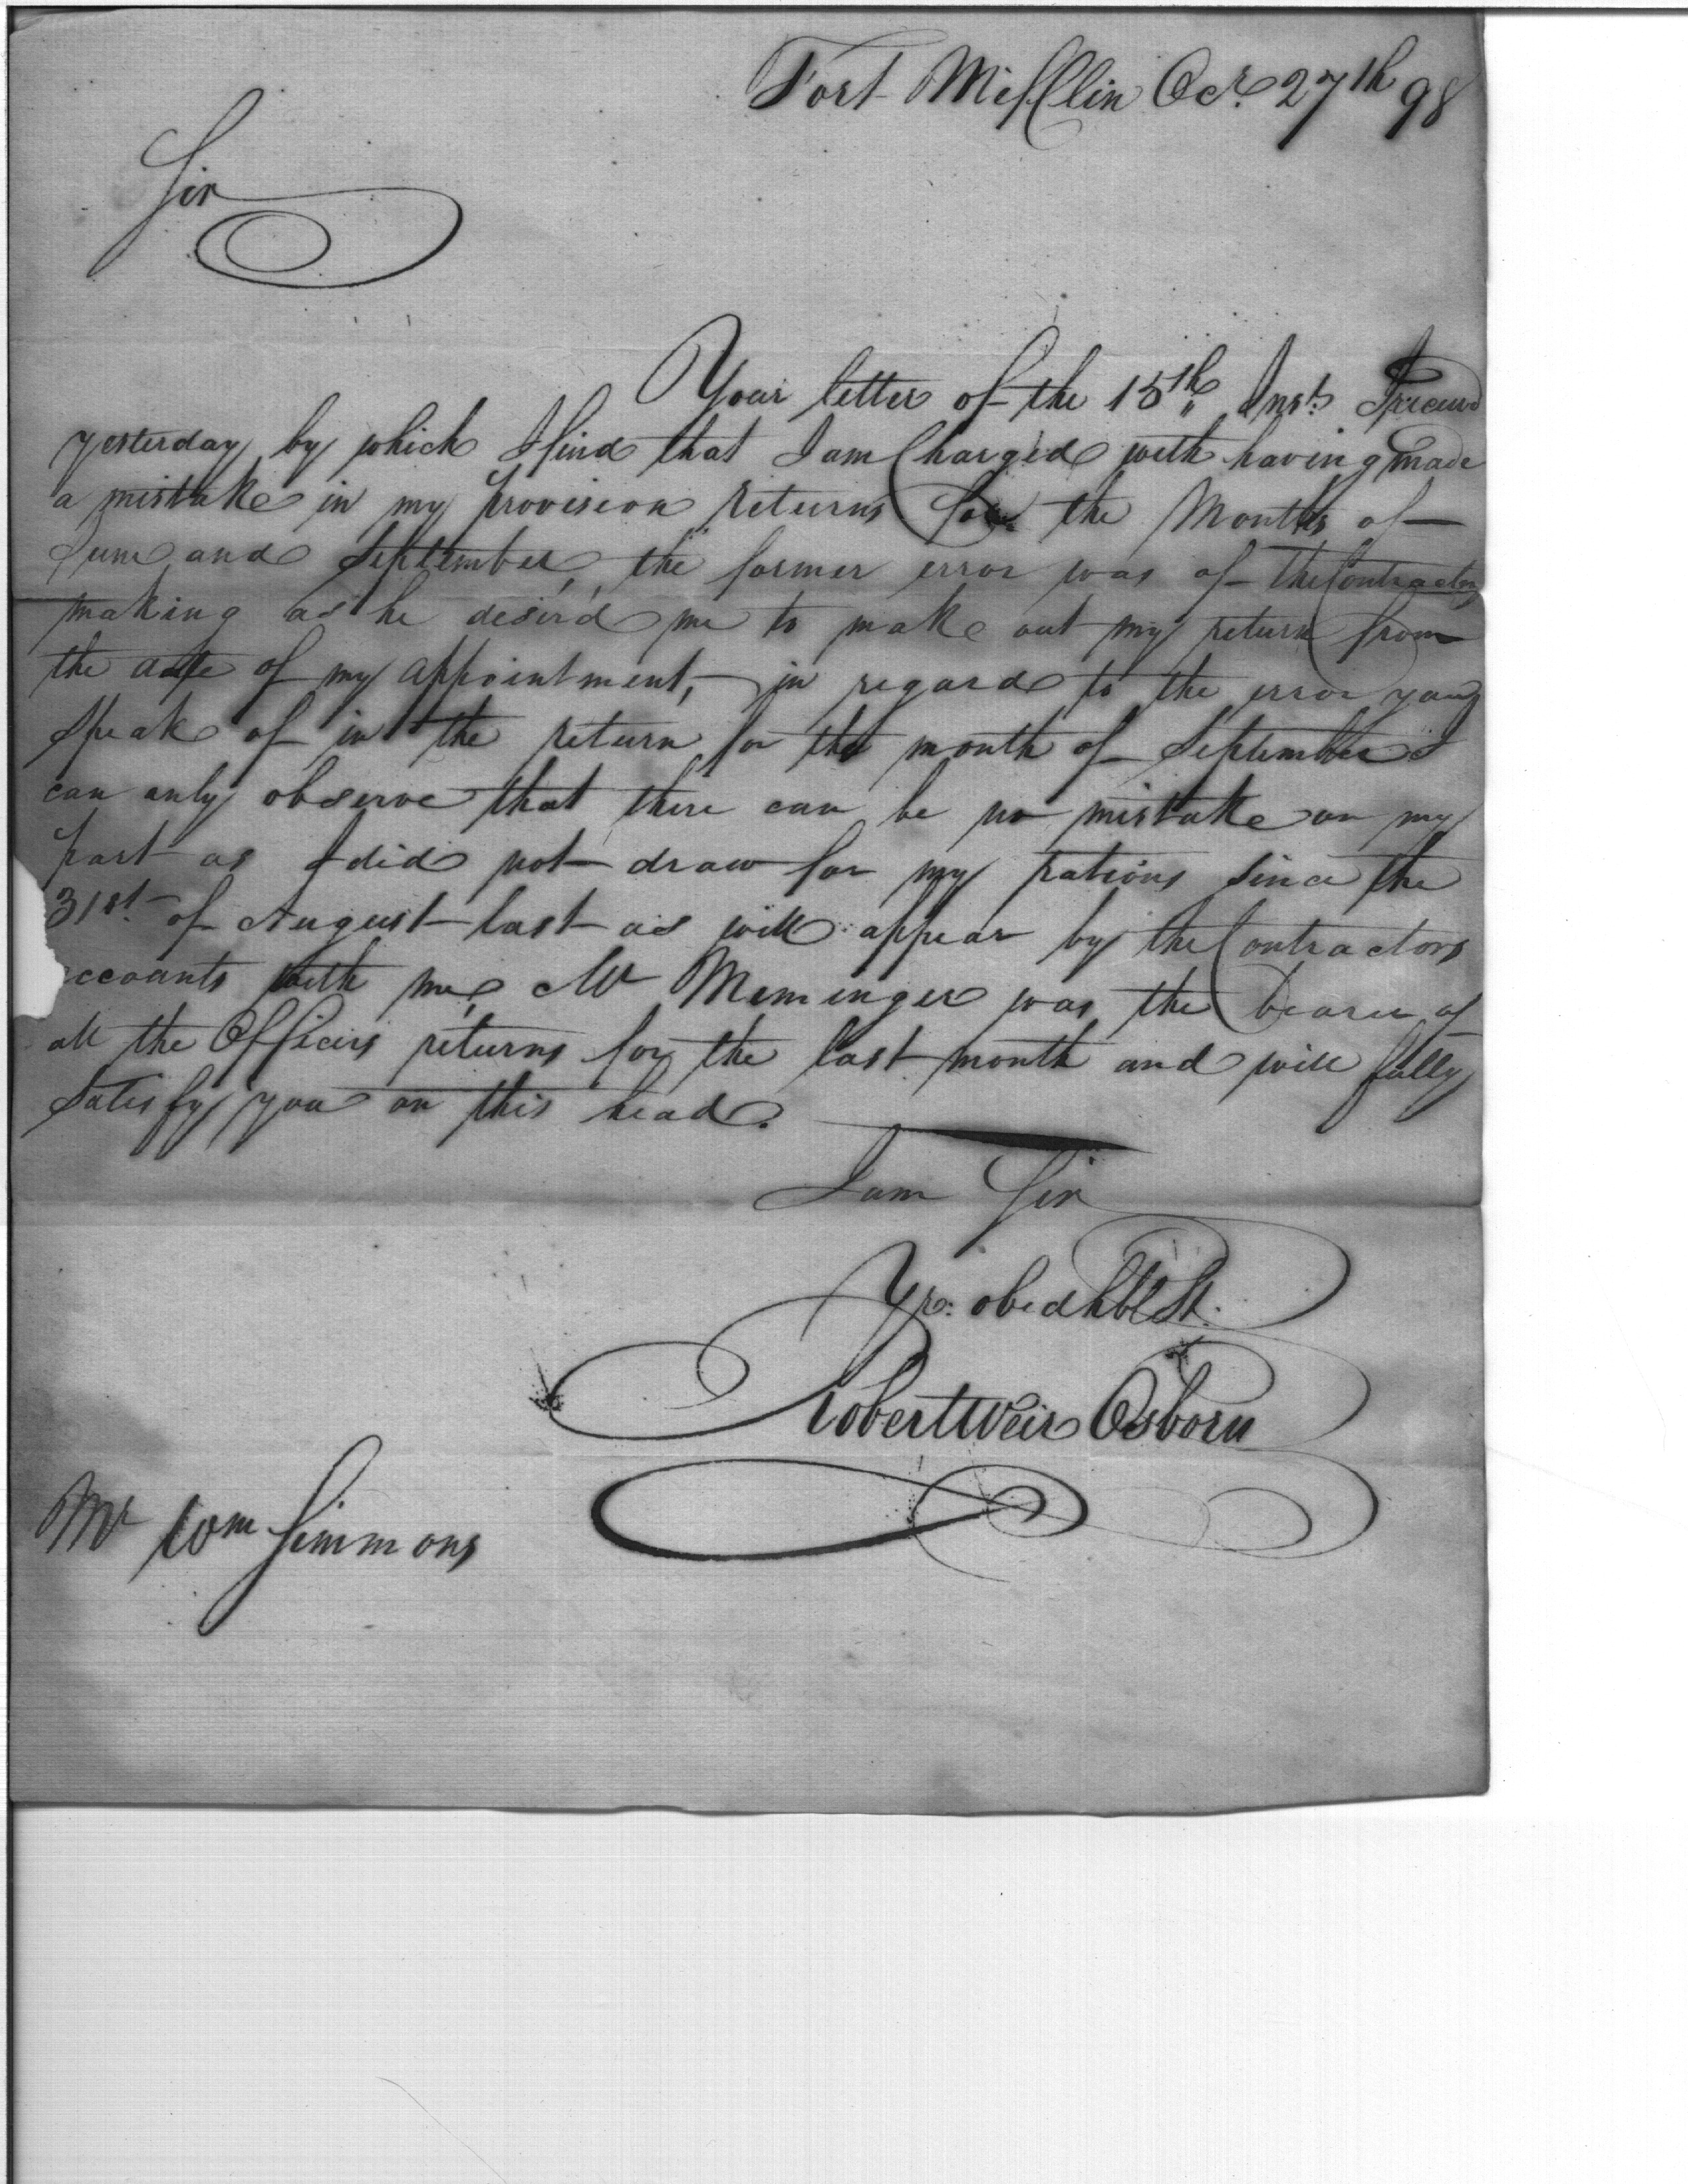 Fort Mifflin Ocr. 27th 98
Sir
Your letter of the 15th Inst. I receivd
yesterday by which I find that I am Charged with having made
a mistake in my provision returns for the Months of
June and September, the former error was of the Contractors
making as he desir'd me to make out my return from
the date of my appointment, in regard to the error you
speak of in the return for the month of September I
can only observe that there can be no mistake on my
part as I did not draw for my rations since the
31st. of August last as will appear by the Contractors
ccounts with me, Mr Memenger was the bearer of
all the Officers returns for the last month and will fully
satisfy you on this head.
I am Sir
Yr. obed hbl St.
Robert Weir Osborn
Mr Wm Simmons